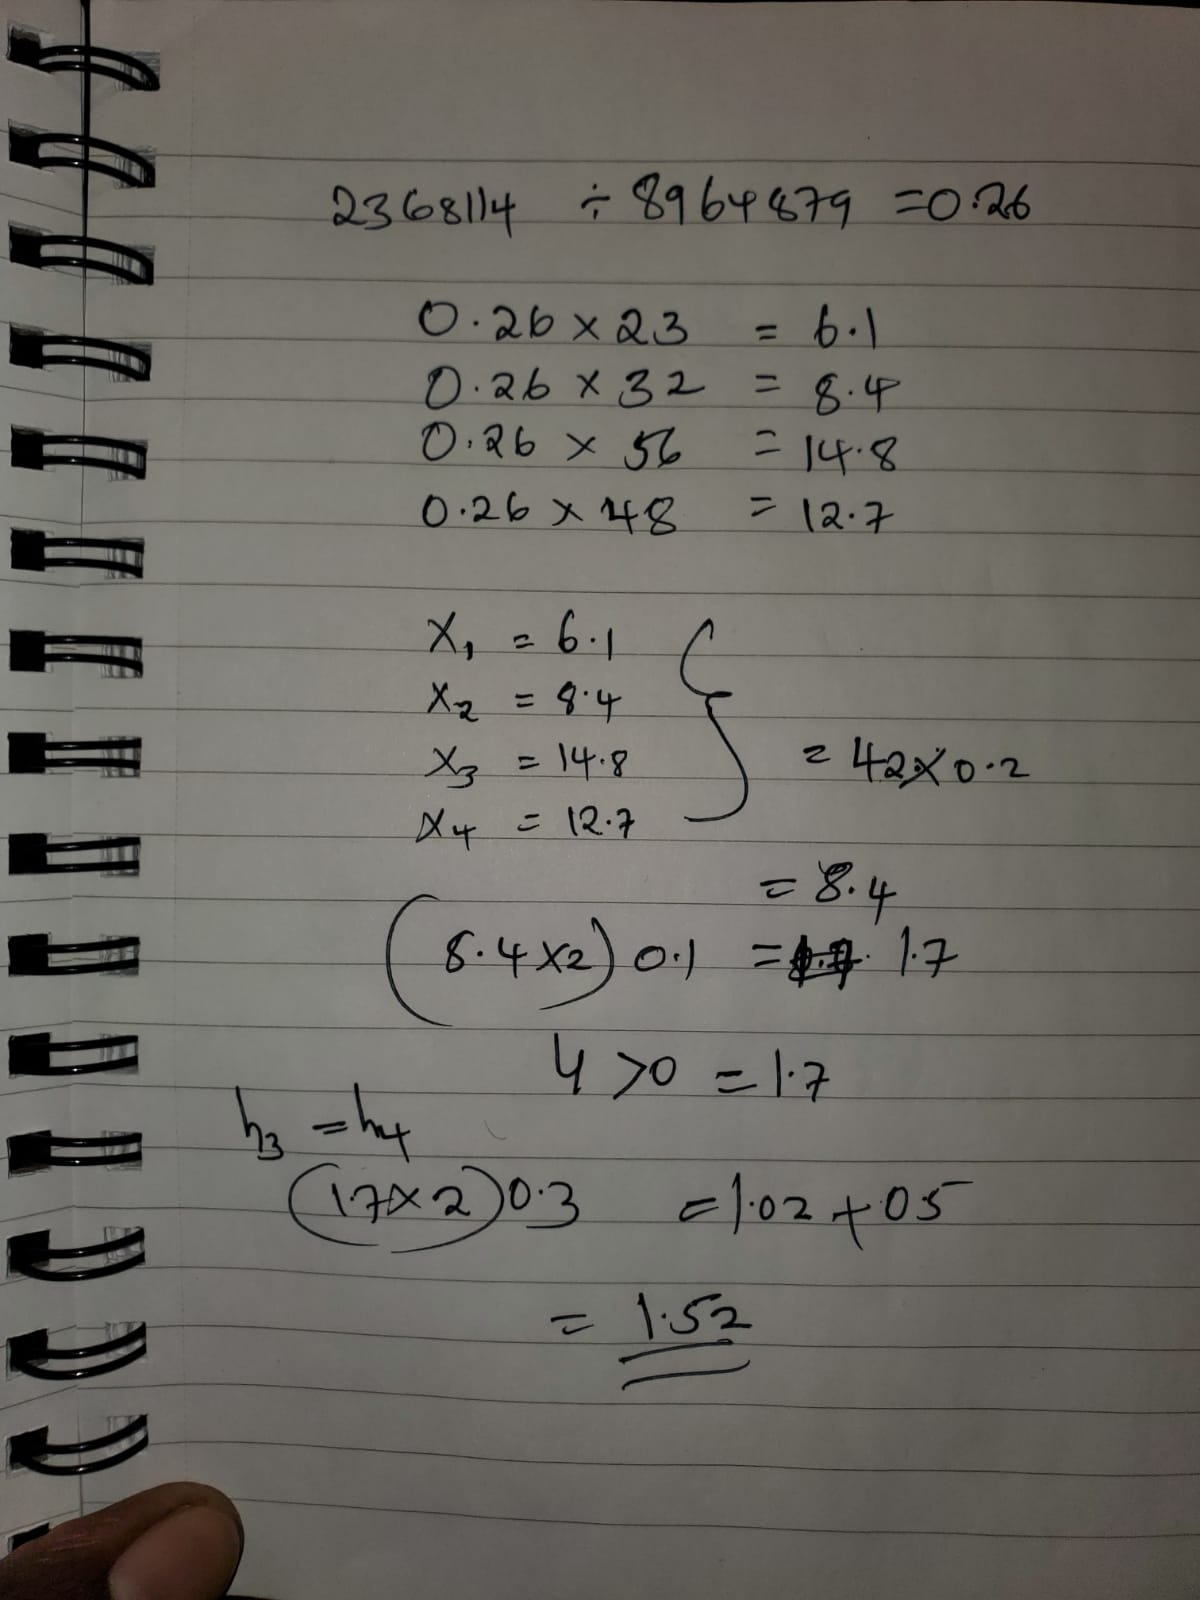 2368114 ÷ 8964879 = 0.26
0.26 × 23 = 6.1
0.26 × 32 = 8.4
0.26 × 56 = 14.8
0.26 × 48 = 12.7
X₁ = 6.1
X₂ = 8.4
X₃ = 14.8
X₄ = 12.7
= 42 × 0.2
= 8.4
(8.4 × 2) 0.1 = 1.7
4 > 0 = 1.7
h₃ = h₄
(1.7 × 2) 0.3 = 1.02 + 0.5
= 1.52